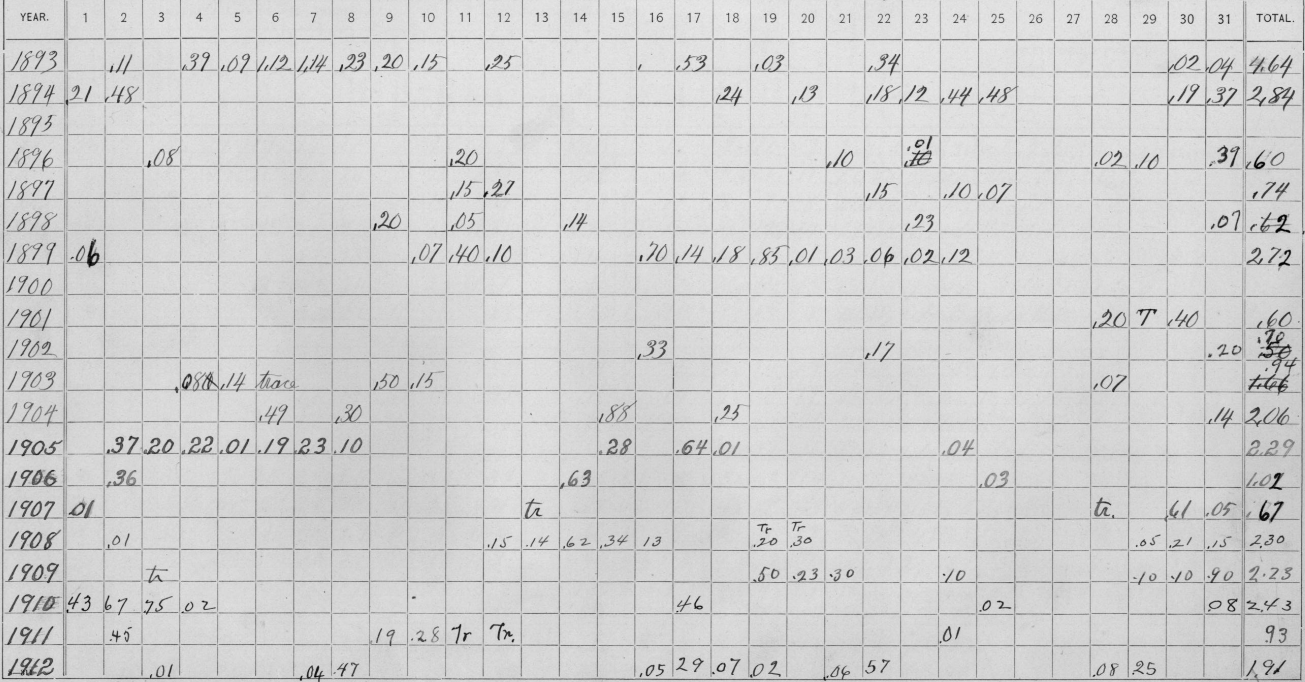 YEAR. 1 2 3 4 5 6 7 8 9 10 11 12 13 14 15 16 17 18 19 20 21 22 23 24 25 26 27 28 29 30 31 TOTAL.
1893 .11 .39 .09 1.12 1.14 .23 .20 .15 .25 .53 .03 .34 .02 .04 4.64
1894 .21 .48 .24 .13 .18 .12 .44 .48 .19 .37 2.84
1895
1896 .08 .20 .10 .01 .10 .02 .10 .39 .60
1897 .15 .27 .15 .10 .07 .74
1898 .20 .05 .14 .23 .07 .62
1899 .06 .07 .40 .10 .70 .14 .18 .85 .01 .03 .06 .02 .12 2.72
1900
1901 .20 T .40 .60
1902 .33 .17 .20 .70 .50
1903 .08 .14 trace .50 .15 .07 .94 1.66
1904 .49 .30 .88 .25 .14 2.06
1905 .37 .20 .22 .01 .19 .23 .10 .28 .64 .01 .04 2.29
1906 .36 .63 .03 1.02
1907 .01 tr tr. .61 .05 .67
1908 .01 .15 .14 .62 .34 13 Tr .20 Tr .30 .05 .21 .15 2.30
1909 tr .50 .23 .30 .10 .10 .10 .90 2.23
1910 .43 67 .75 .02 .46 .02 .08 2.43
1911 .45 .19 .28 Tr Tr. .01 .93
1912 .01 .04 .47 .05 29 .07 .02 .06 57 .08 25 1.91